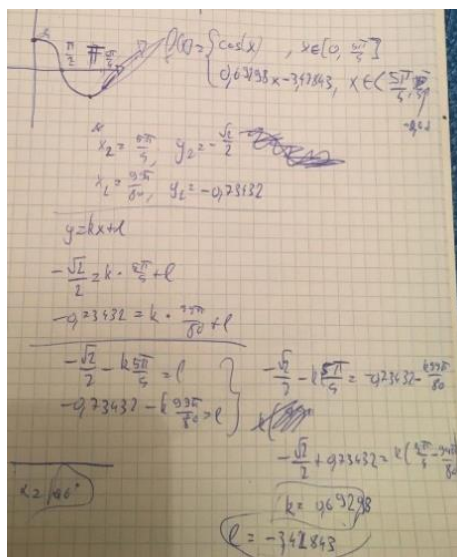 π/2 π 5π/4
f(x) = { cos(x) , x∈[0, 5π/4]
0,69298x-3,42843, x∈(5π/4,
x₂ = 5π/4, y₂ = -√2/2
x₁ = 99π/80, y₁ = -0,73432
y=kx+l
-√2/2 = k · 5π/4 + l
-0,73432 = k · 99π/80 + l
-√2/2 - k 5π/4 = l
-0,73432 - k 99π/80 = l
-√2/2 - k 5π/4 = -0,73432 - k 99π/80
-√2/2 + 0,73432 = k(5π/4 - 99π/80
k = 0,69298
l = -3,42843